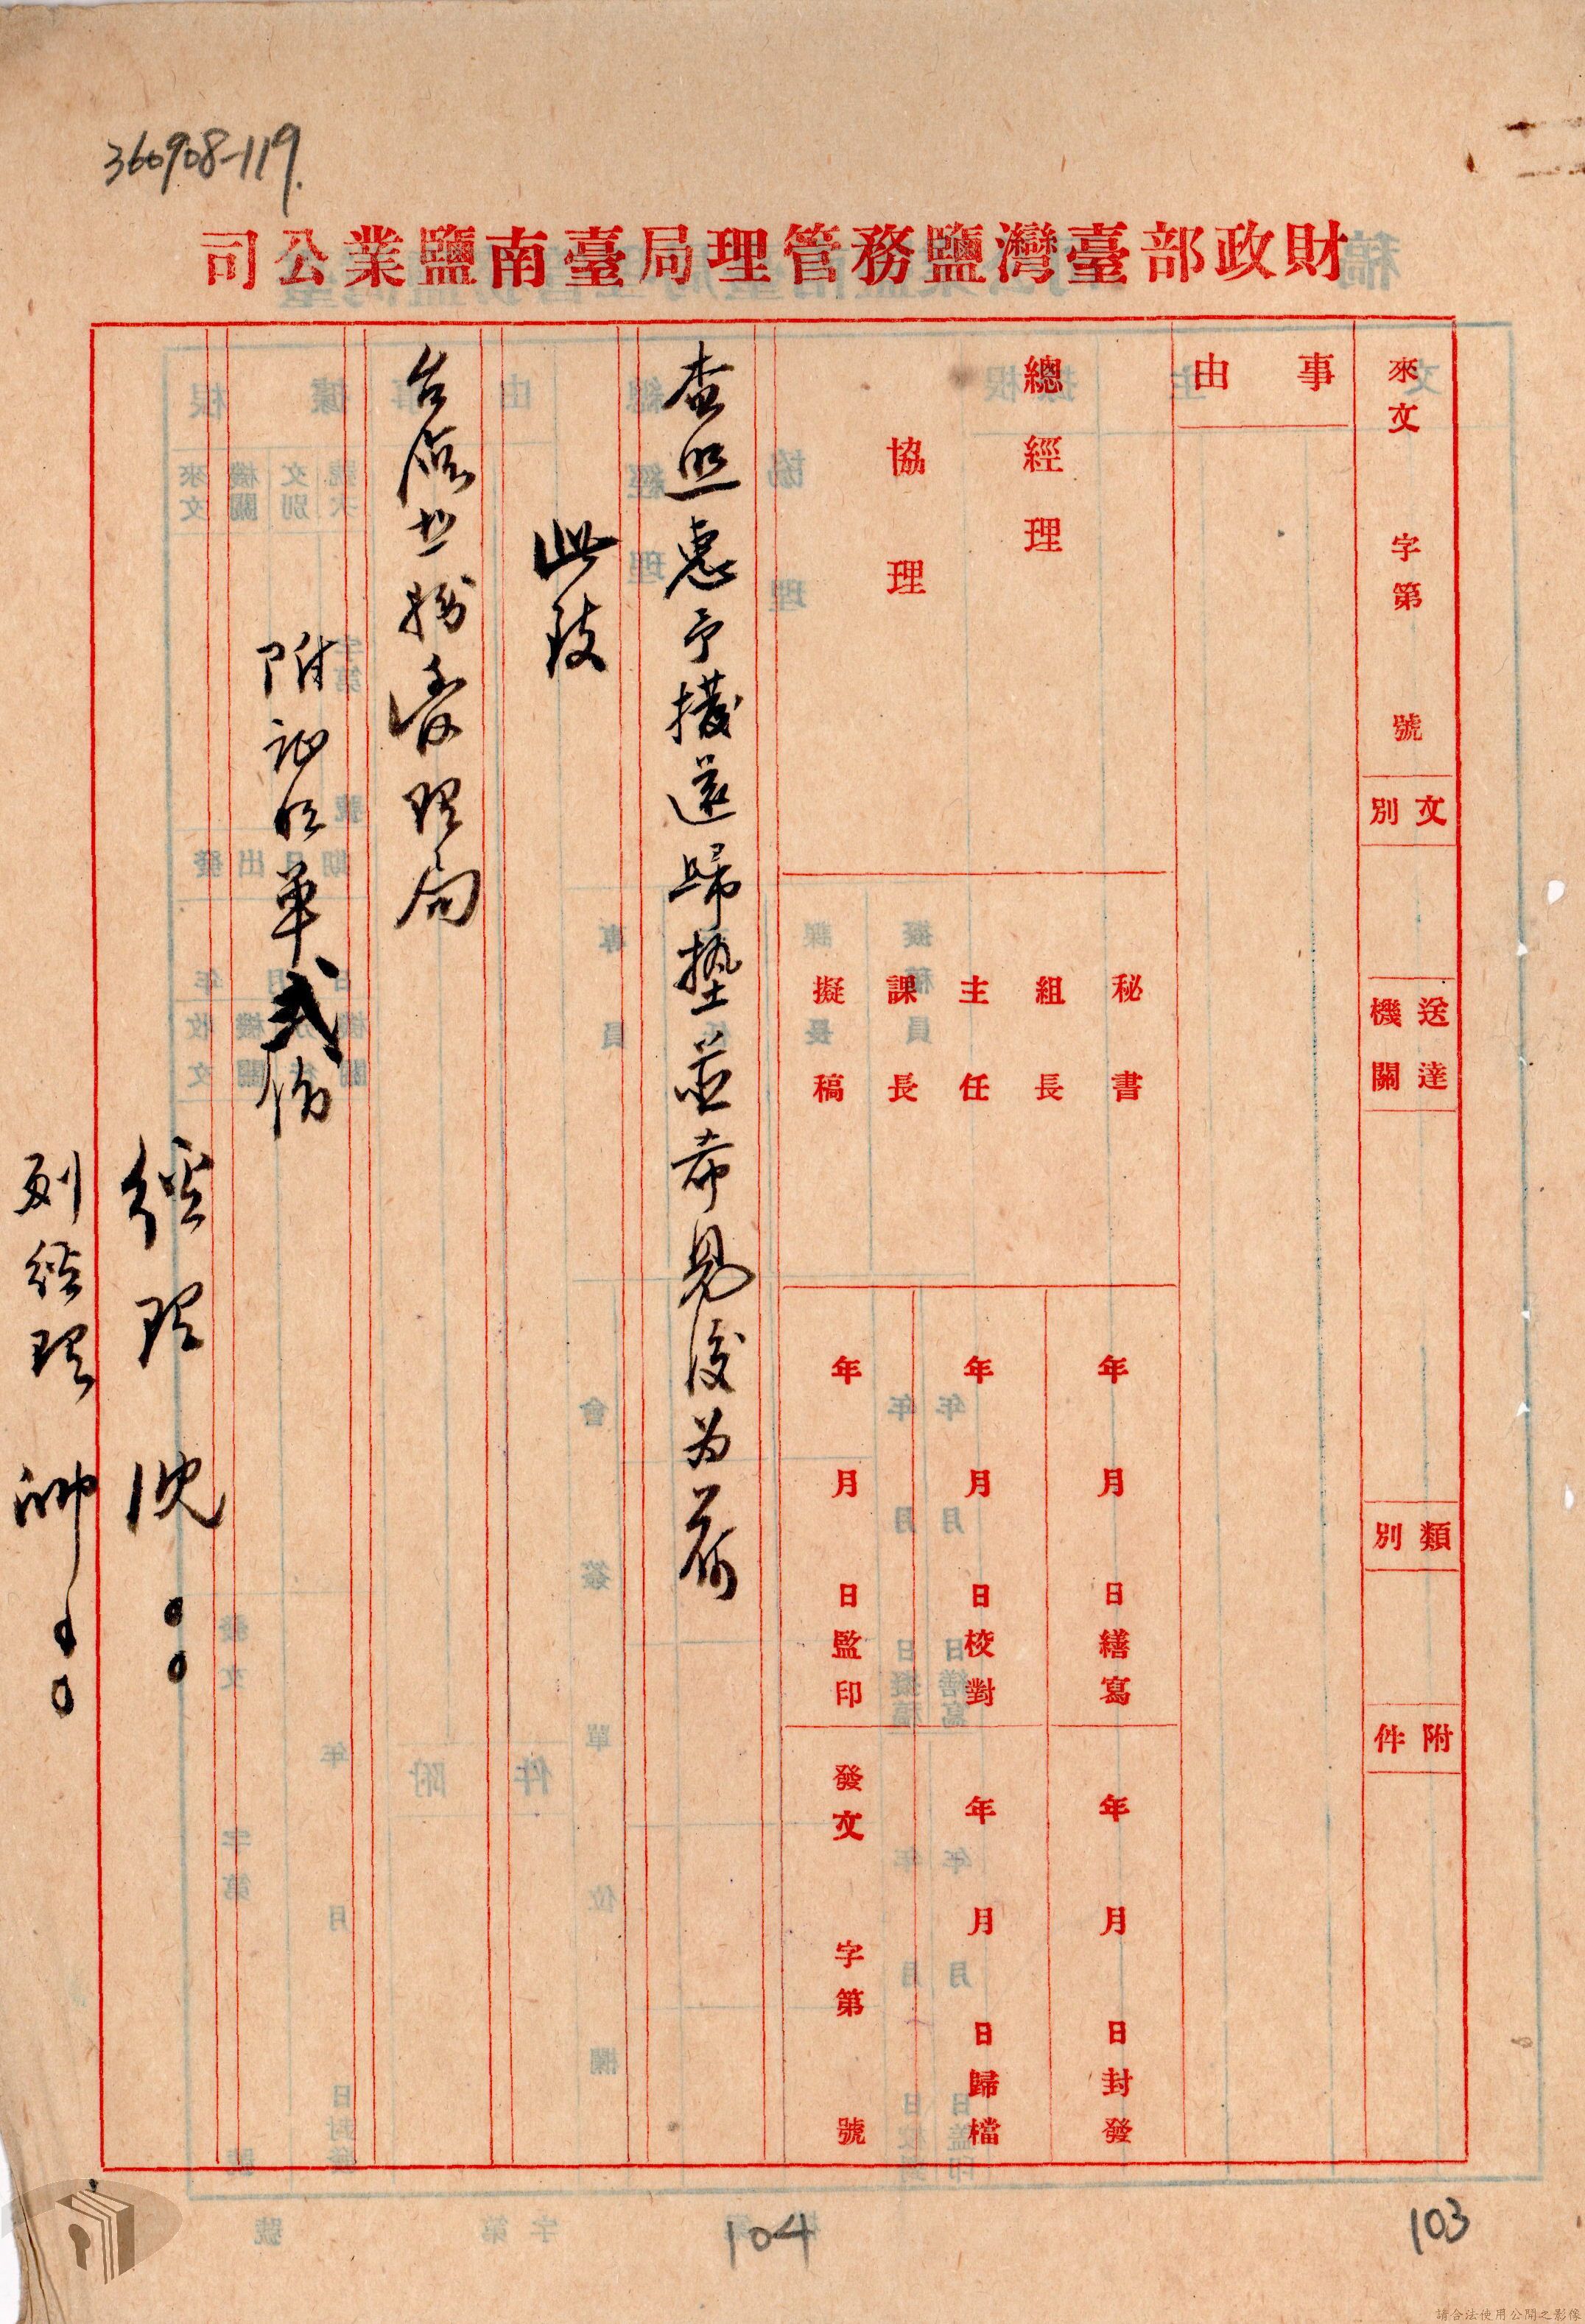 360908-119.
財政部臺灣鹽務管理局臺南鹽業公司
來文 字第 號
文別
送達機關
類別
附件
事由
總經理
協理
秘書
組長
主任
課長
擬稿
年 月 日繕寫
年 月 日校對
年 月 日監印
年 月 日封發
年 月 日歸檔
發文 字第 號
查照惠予撥還歸墊並希見復为荷
此致
台灣塩務管理局
附証明單貳份
經理 沈
副經理
104
103
請合法使用公開之影像